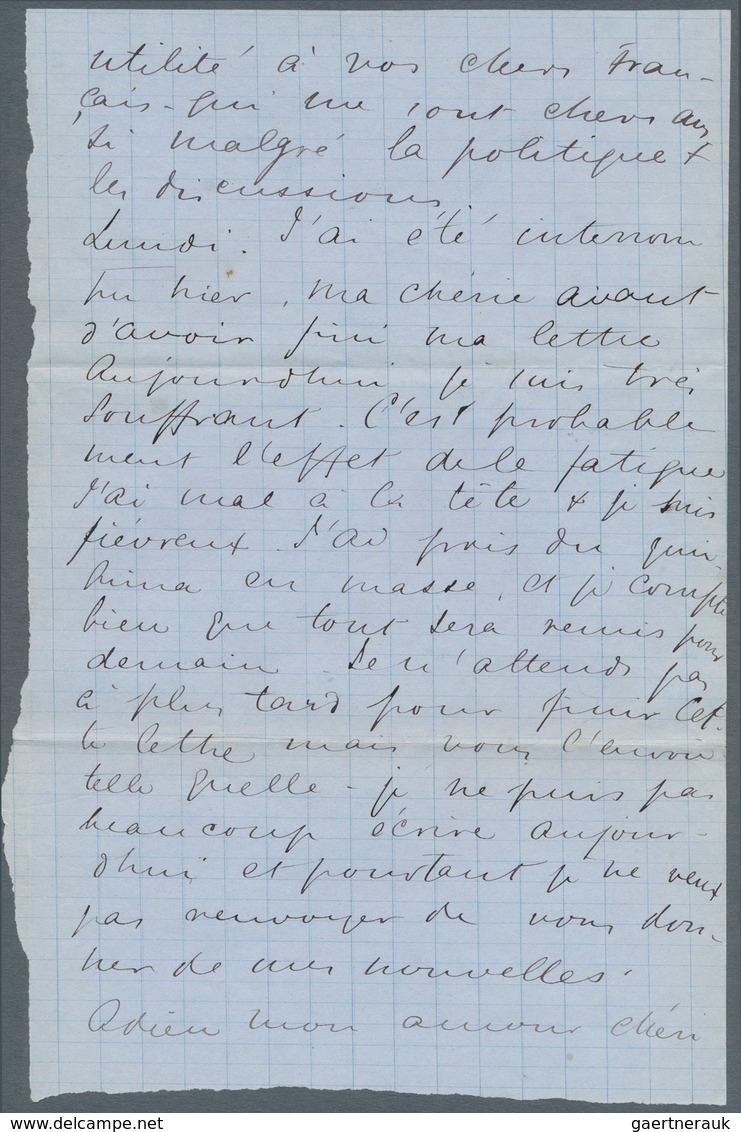 utilité à vos chers Fran-
çais - qui me sont chers aus
si malgré la politique &
les discussions.
Lundi. J'ai été interrom
pu hier, ma chérie avant
d'avoir fini ma lettre
Aujourdhui je suis très
souffrant. C'est probable
ment l'effet de la fatigue
J'ai mal à la tête & je suis
fiévreux. J'ai pris du quin-
hina en masse, et je compte
bien que tout sera remis pour
demain. Je n'attends pas
à plus tard pour finir cet-
te lettre mais vous l'envoie
telle quelle - je ne puis pas
beaucoup écrire aujour-
dhui et pourtant je ne veux
pas renvoyer de vous don-
ner de mes nouvelles.
Adieu mon amour chéri
gaertnerauk
www.delcampe.net